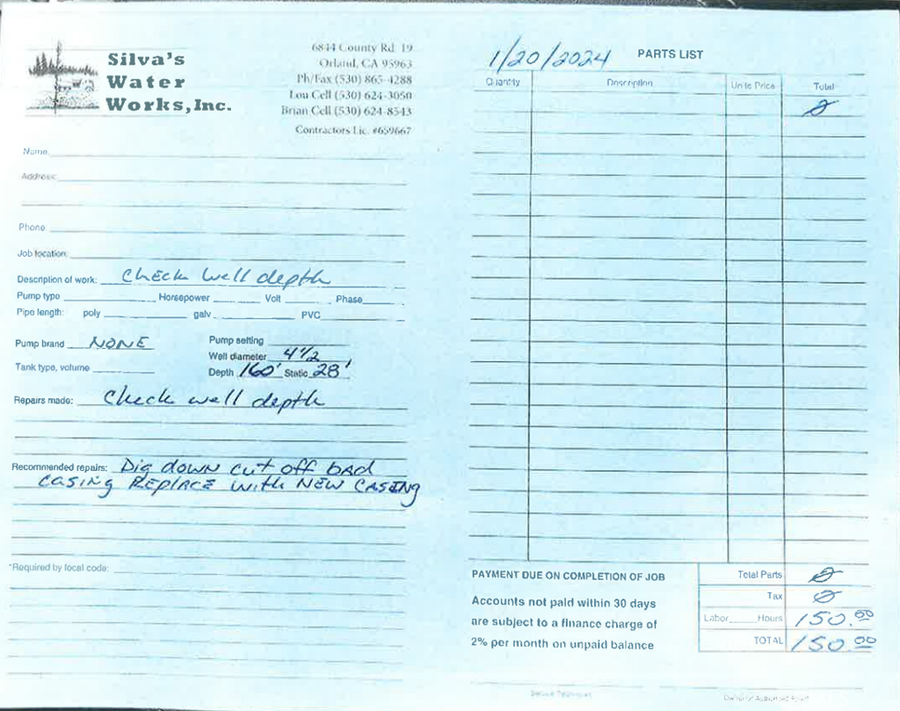 Silva's
Water
Works, Inc.
6844 County Rd. 19
Orland, CA 95963
Ph/Fax (530) 865-4288
Lou Cell (530) 624-3050
Brian Cell (530) 624-8543
Contractors Lic. #659667
Name
Address:
Phone
Job location:
Description of work: Check well depth
Pump type Horsepower Volt Phase
Pipe length: poly galv PVC
Pump brand NONE
Tank type, volume
Pump setting
Well diameter 4 1/2
Depth 160' Static 28'
Repairs made: Check well depth
Recommended repairs: Dig down cut off bad
casing Replace with new casing
*Required by local code:
1/20/2024 PARTS LIST
Quantity Description Units Price Total
0
PAYMENT DUE ON COMPLETION OF JOB
Accounts not paid within 30 days
are subject to a finance charge of
2% per month on unpaid balance
Total Parts 0
Tax 0
Labor Hours 150.00
TOTAL 150.00